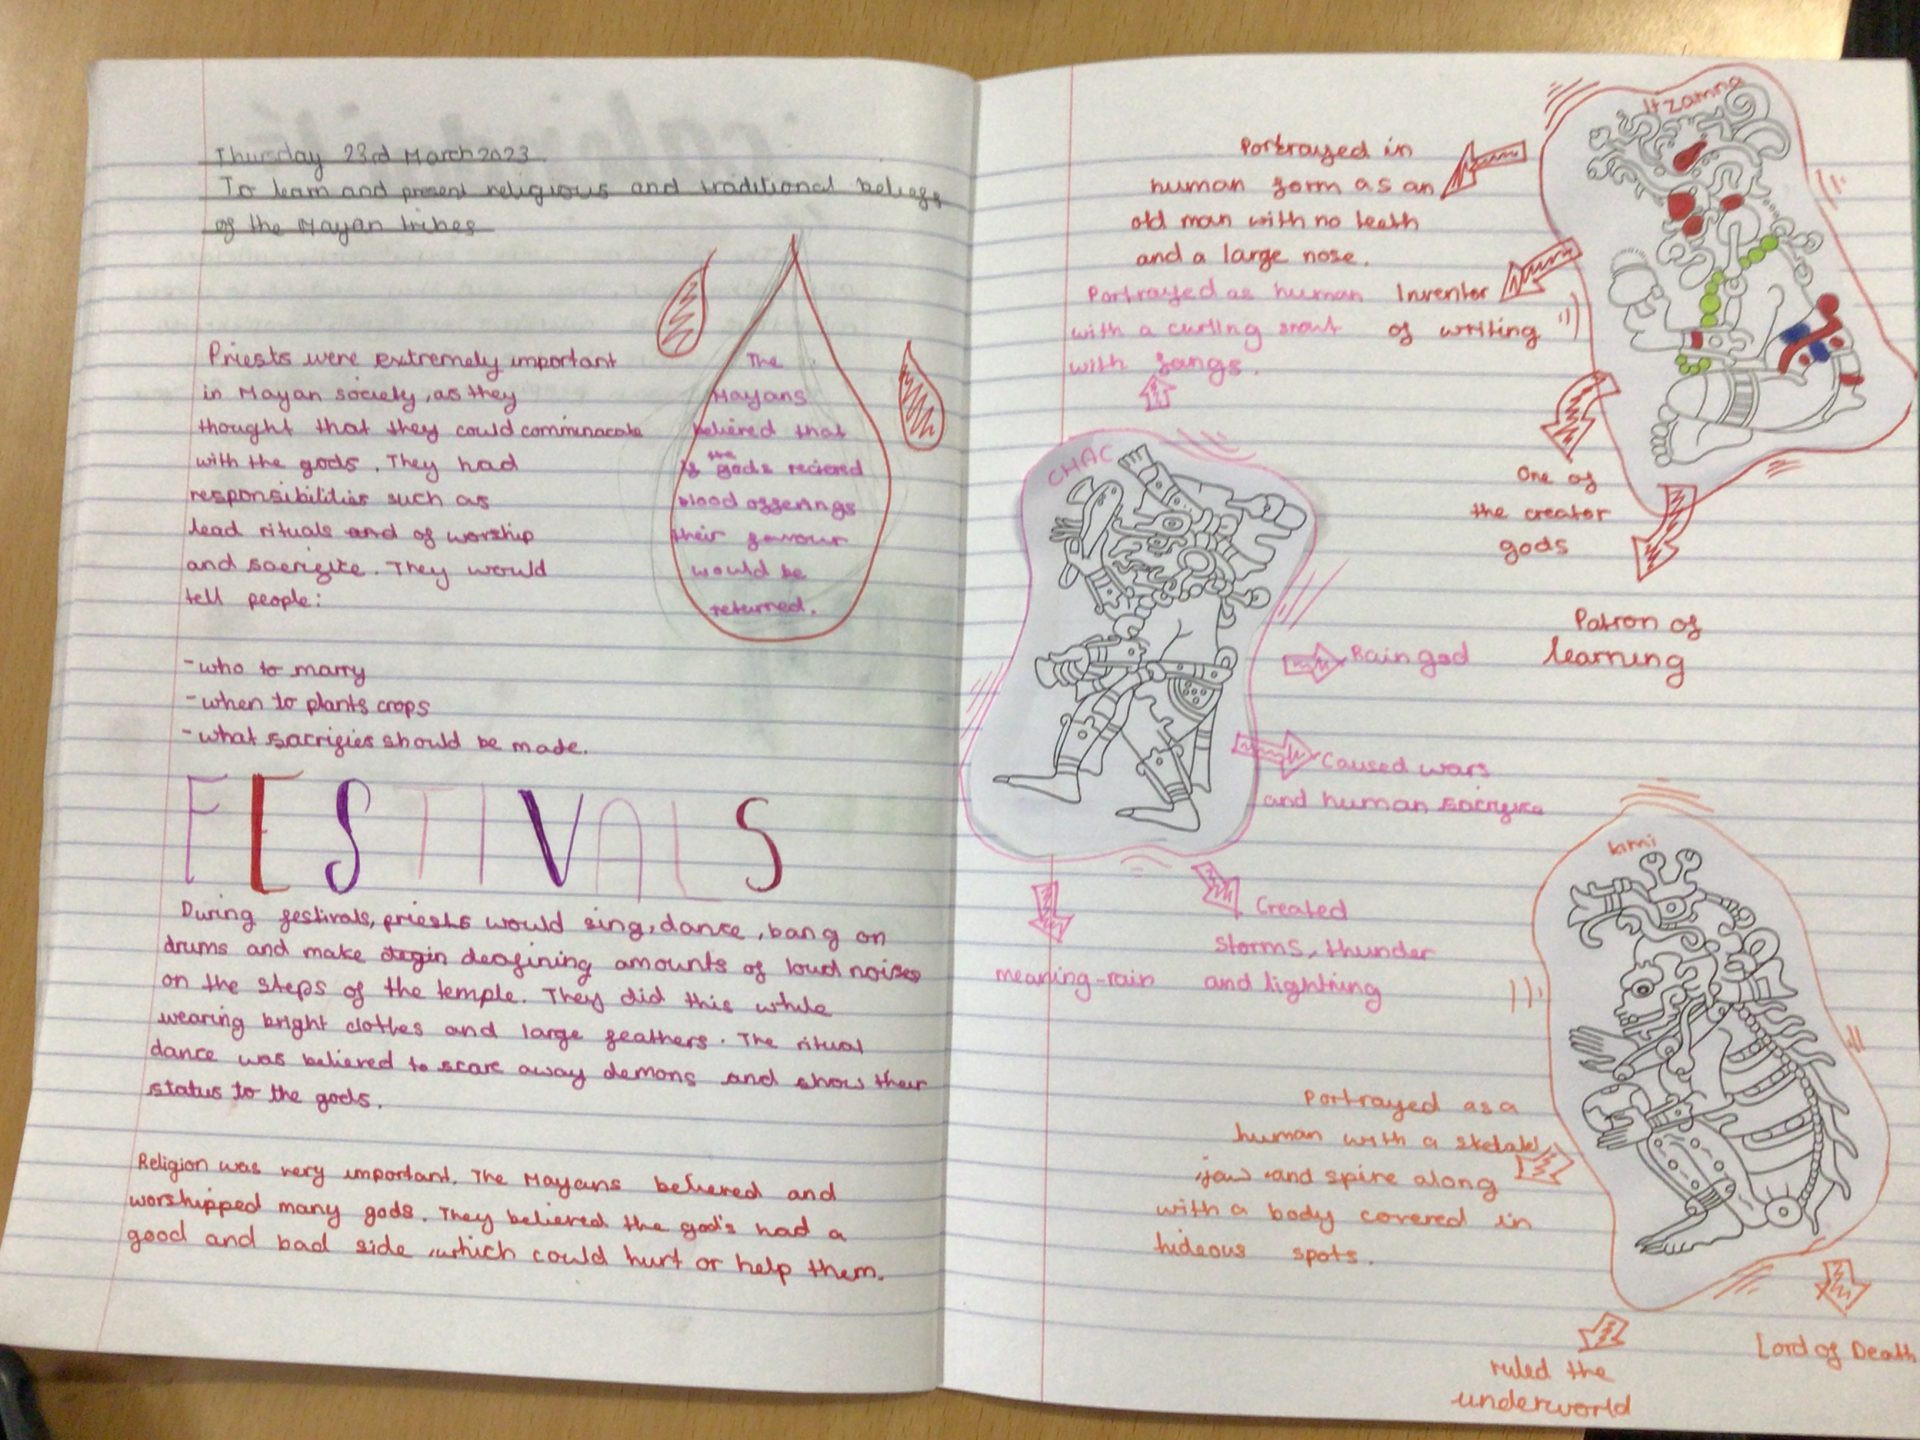 Thursday 23rd March 2023
To learn and present religious and traditional beliefs
of the Mayan tribes
Priests were extremely important
in Mayan society, as they
thought that they could comminacate
with the gods. They had
responsibilities such as
lead rituals and of worship
and sacrifice. They would
tell people:
-who to marry
-when to plants crops
-what sacrifies should be made.
The
Mayans
believed that
if the gods recieved
blood offerings
their favour
would be
returned.
FESTIVALS
During festivals, priests would sing, dance, bang on
drums and make deafining amounts of loud noises
on the steps of the temple. They did this while
wearing bright clothes and large feathers. The ritual
dance was believed to scare away demons and show their
status to the gods.
Religion was very important. The Mayans believed and
worshipped many gods. They believed the god's had a
good and bad side, which could hurt or help them.
Itzamna
Portrayed in
human form as an
old man with no teeth
and a large nose.
Inventor
of writing
One of
the creator
gods
Patron of
learning
Portrayed as human
with a curling snout
with fangs.
CHAC
Rain god
Caused wars
and human sacrifice
Created
storms, thunder
and lightning
meaning-rain
kimi
Portrayed as a
human with a
jaw and spire along
with a body covered in
hideous spots.
Lord of Death
ruled the
underworld